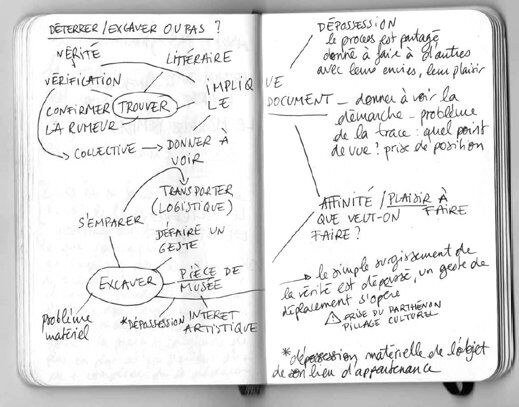 DÉTERRER / EXCAVER OU PAS ?
VÉRITÉ
LITTÉRAIRE
VÉRIFICATION
IMPLIQUE
LE
CONFIRMER
LA RUMEUR
TROUVER
COLLECTIVE
DONNER À
VOIR
TRANSPORTER
(LOGISTIQUE)
S'EMPARER
DÉFAIRE UN
GESTE
EXCAVER
PIÈCE DE
MUSÉE
problème
matériel
*DÉPOSSESSION
INTERET
ARTISTIQUE
DÉPOSSESSION
le process est partagé
donné à faire à d'autres
avec leurs envies, leur plaisir
DOCUMENT - donner à voir la
démarche - problème
de la trace : quel point
de vue ? prise de position
AFFINITÉ / PLAISIR À
FAIRE
QUE VEUT-ON
FAIRE ?
le simple surgissement de
la vérité est dépassé, un geste de
déplacement s'opère
⚠ PRISE DU PARTHÉNON
PILLAGE CULTUREL
*dépossession matérielle de l'objet
de son lieu d'appartenance